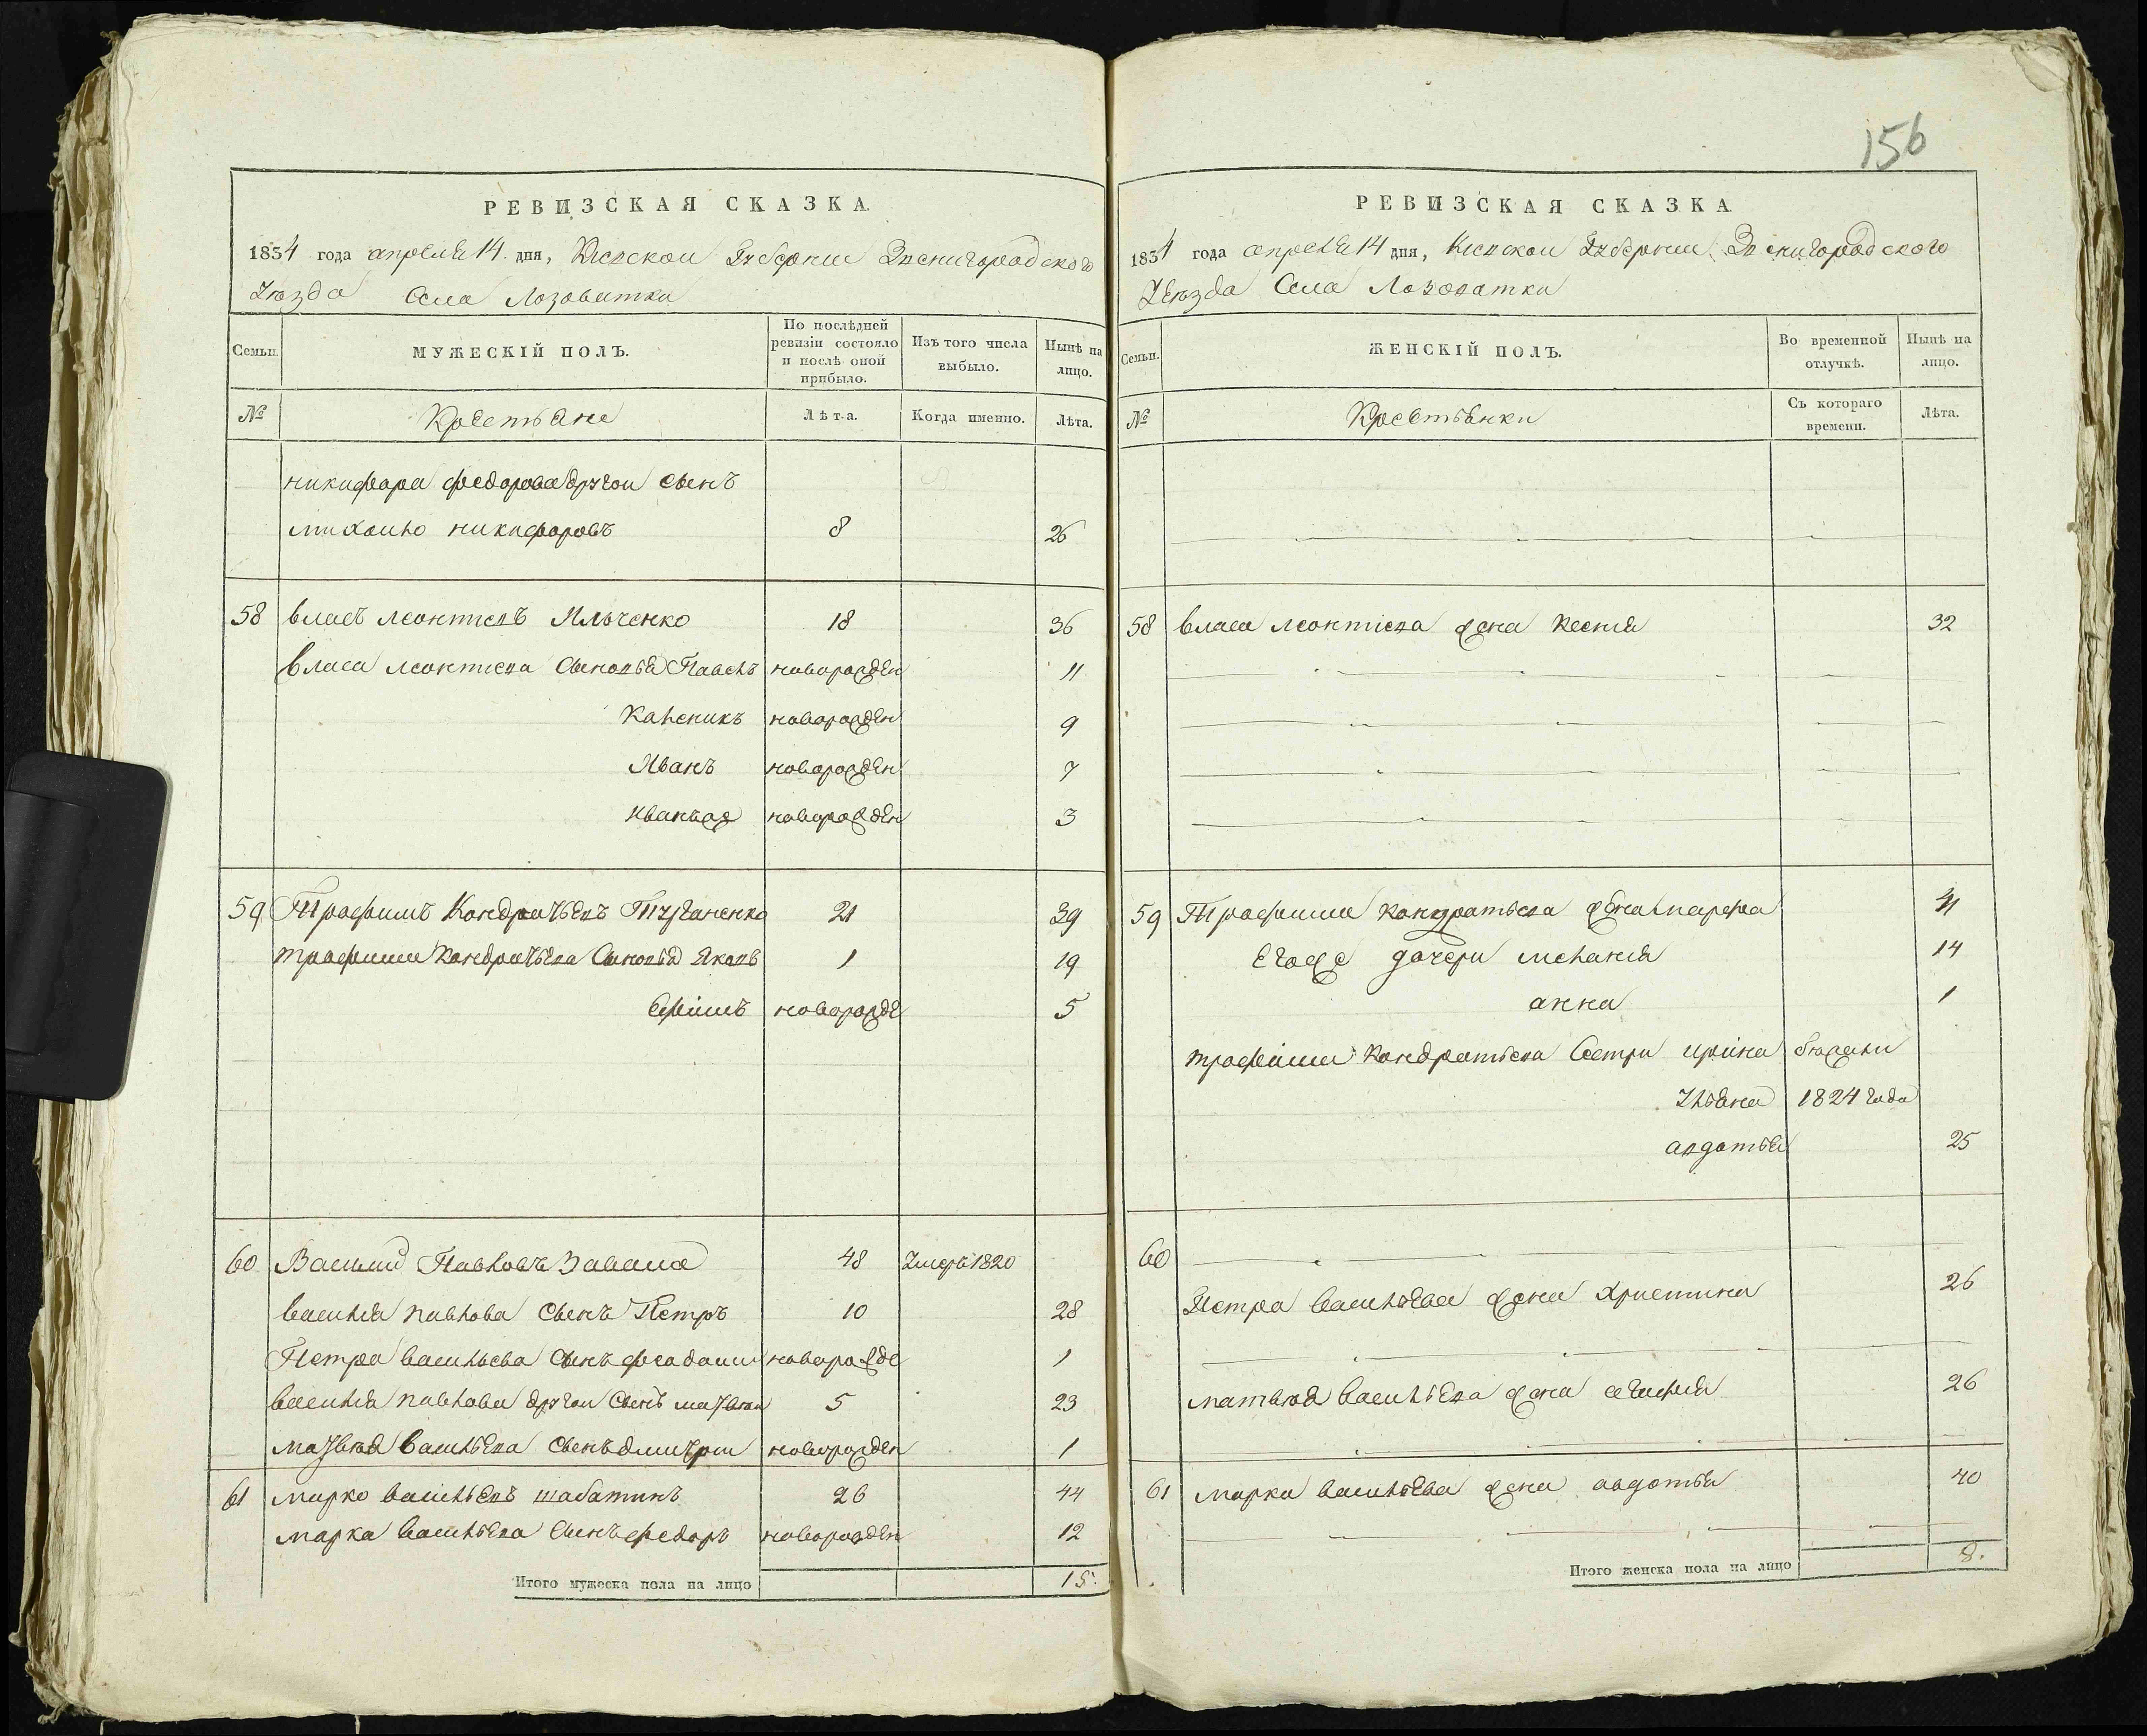 156
РЕВИЗСКАЯ СКАЗКА
1834 года апреля 14 дня, Киевской Губернии Звенигородского
Уюзда Села Лозоватки
Семьи. МУЖЕСКІЙ ПОЛЪ. По послѣдней ревизіи состояло и послѣ оной прибыло. Изъ того числа выбыло. Нынѣ на лицо.
№ Крестьяне Лѣта. Когда именно. Лѣта.
никифора федорова другои сынъ
михаило никифоровъ 8 26
58 власъ леонтиевъ Ильченко 18 36
власа леонтиева Сыновья Павелъ новорожден 11
Каленикъ новорожден 9
Иванъ новорожден 7
новорожден 3
59 Трафимъ Кондратьевъ 21 39
трафима Кондратьева Сыновья Яковъ 1 19
Ефимъ новорожде 5
60 Василий Павловъ Завала 48 Умеръ 1820
василия павлова Сынъ Петръ 10 28
Петра васильева Сынъ новорожде 1
василия павлова другои Сынъ матвеи 5 23
матвюя васильева Сынъ дмитрии новорожден 1
61 марко васильевъ шабатинъ 26 44
марка васильева Сынъ федоръ новорожден 12
Итого мужеска пола на лицо 15.
РЕВИЗСКАЯ СКАЗКА
1834 года апреля 14 дня, Киевской Губернии Звенигородского
Уюзда Села Лозоватки
Семьи. ЖЕНСКІЙ ПОЛЪ. Во временной отлучкѣ. Нынѣ на лицо.
№ Крестьянки Съ котораго времени. Лѣта.
58 власа леонтіева жена Ксения 32
59 Трафима кондратьева жена марфа
Егоже дочери мелания 14
анна 1
трафима Кондратьева Сестри ирина бюжали
Ульяна 1824 года
авдотья 25
60
Петра васильева жена Христина 26
матвюя васильева жена 26
61 марка васильева жена авдотья 40
Итого женска пола на лицо 8.